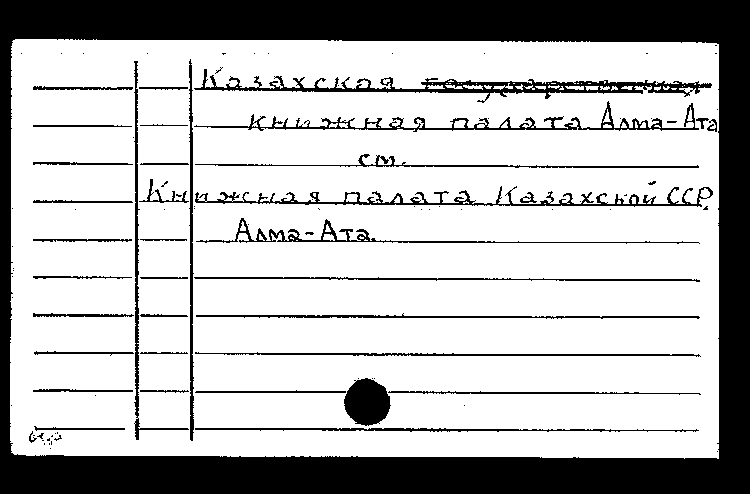 Казахская государственная
книжная палата Алма-Ата
см.
Книжная палата Казахской ССР.
Алма-Ата.